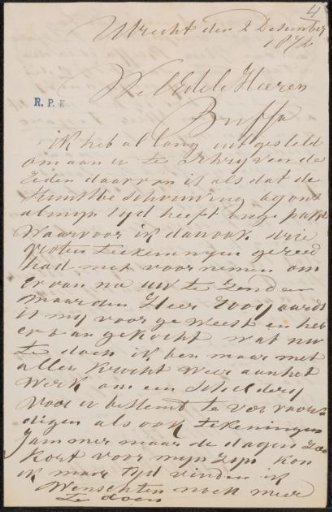 4
Utrecht den 2 December
1874
WelEdele Heeren
R.P.K
Buffa
Ik heb al lang uitgesteld
om aan u te schryven de
reden daarvan is als dat de
Kunstbeschouwing Agoed
al myn tyd heeft
waarvoor ik dan ook drie
groten teekeningen gereed
had met voornemen om
er van na uw te zenden
maar den Heer Hooy aardt
is my voor geweest en het
eer aangekocht wat nu
te doen ik ben maar met
aller kracht weer aan het
werk om een schildery
voor u bestemd te vervaar
digen als ook teekeningen
Jammer maar de dagen zoo
kort voor myn zyn kon
ik maar tyd vinden ik
Wenschten noch meer
te doen